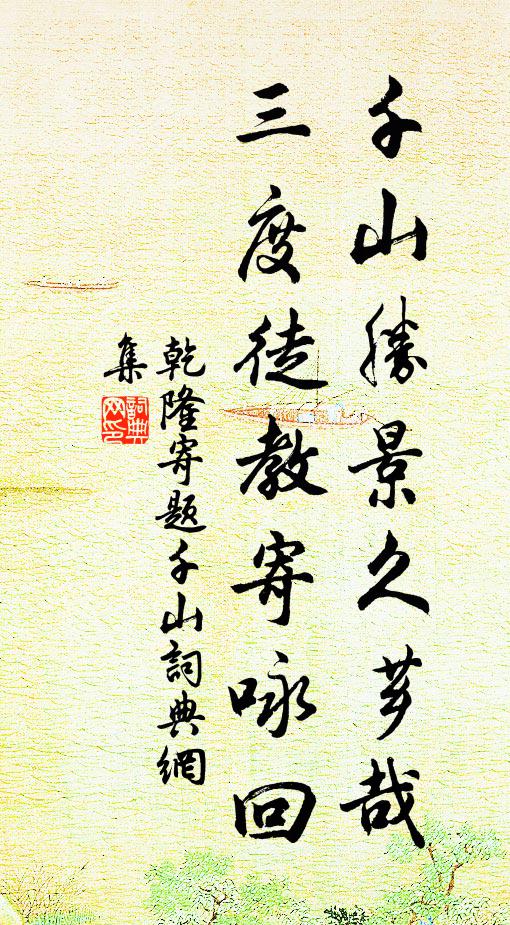 千山勝景久哉
三度徒教寄咏回
乾隆寄題千山詞典網
集
詞典
网印